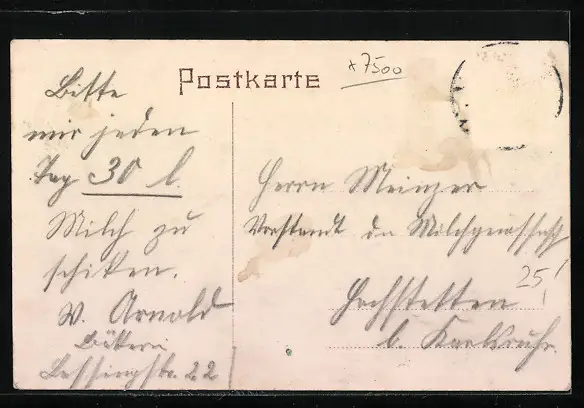 Postkarte
x7500
Bitte
mir jeden
Tag 30 l.
Milch zu
schiken.
W. Arnold
Bäkerei
Lessingstr. 22
Herrn Meinzer
Vorstandt der Milchgenossschft
25!
Hochstetten
b. Karlsruhe.